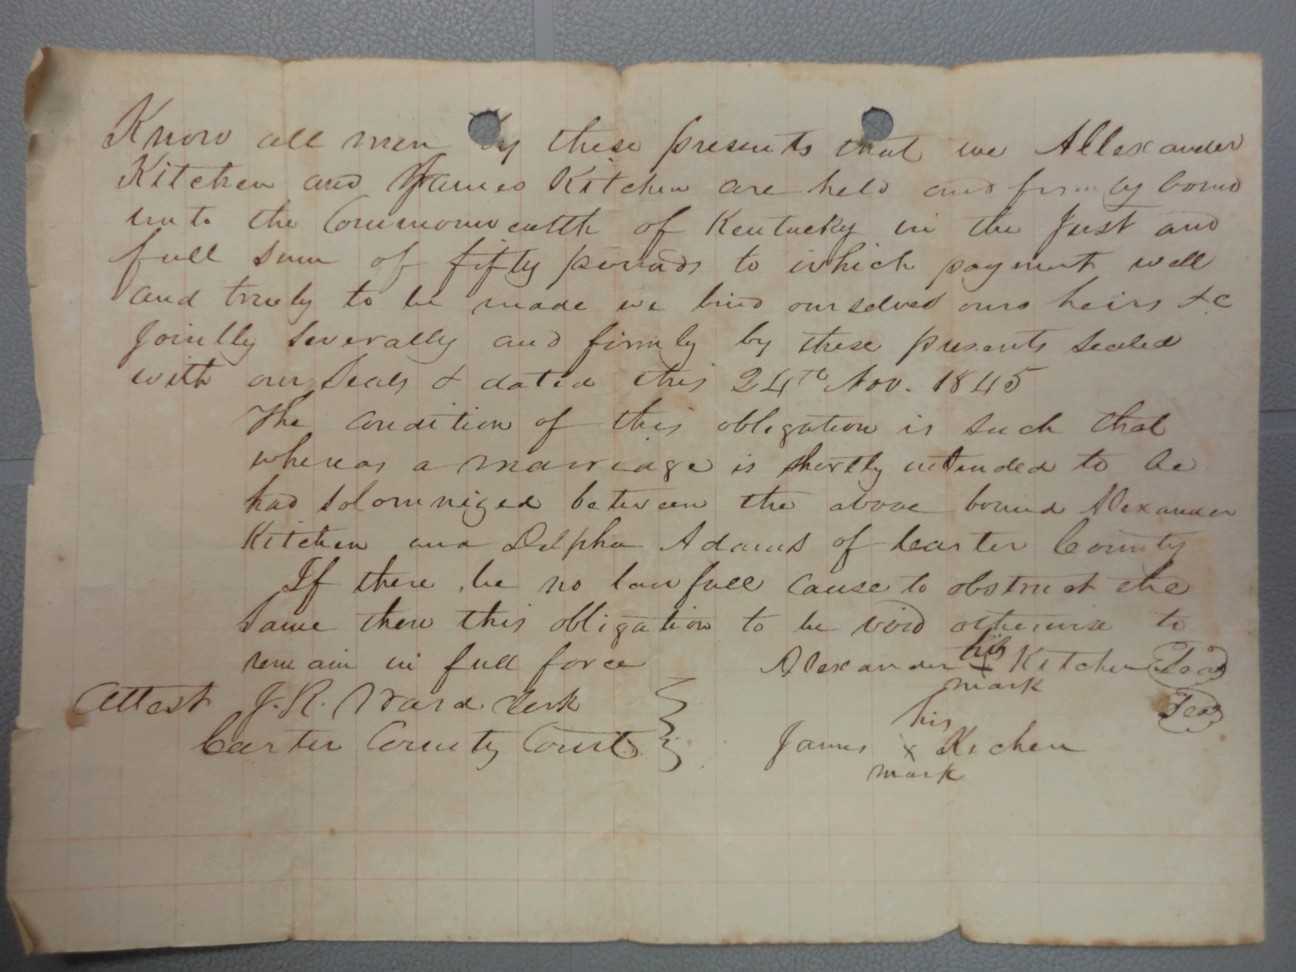 Know all men by these presents that we Allexander
Kitchen and James Kitchen are held and firmly bound
unto the Commonwealth of Kentucky in the Just and
full sum of fifty pounds to which payment well
and truely to be made we bind ourselves ours heirs &c
Joinlly Severally and firmly by these presents sealed
with our Seals & dated this 24th Nov. 1845
The condition of this obligation is such that
whereas a marriage is shortly intended to be
had solomnized between the above bound Alexander
Kitchen and Delpha Adams of Carter County
If there be no lawfull cause to obstruct the
Same then this obligation to be void otherwise to
remain in full force Alexander his x mark Kitchen Seal
Attest J. R. Ward Clerk Seal
Carter County Court James his x mark Kichen